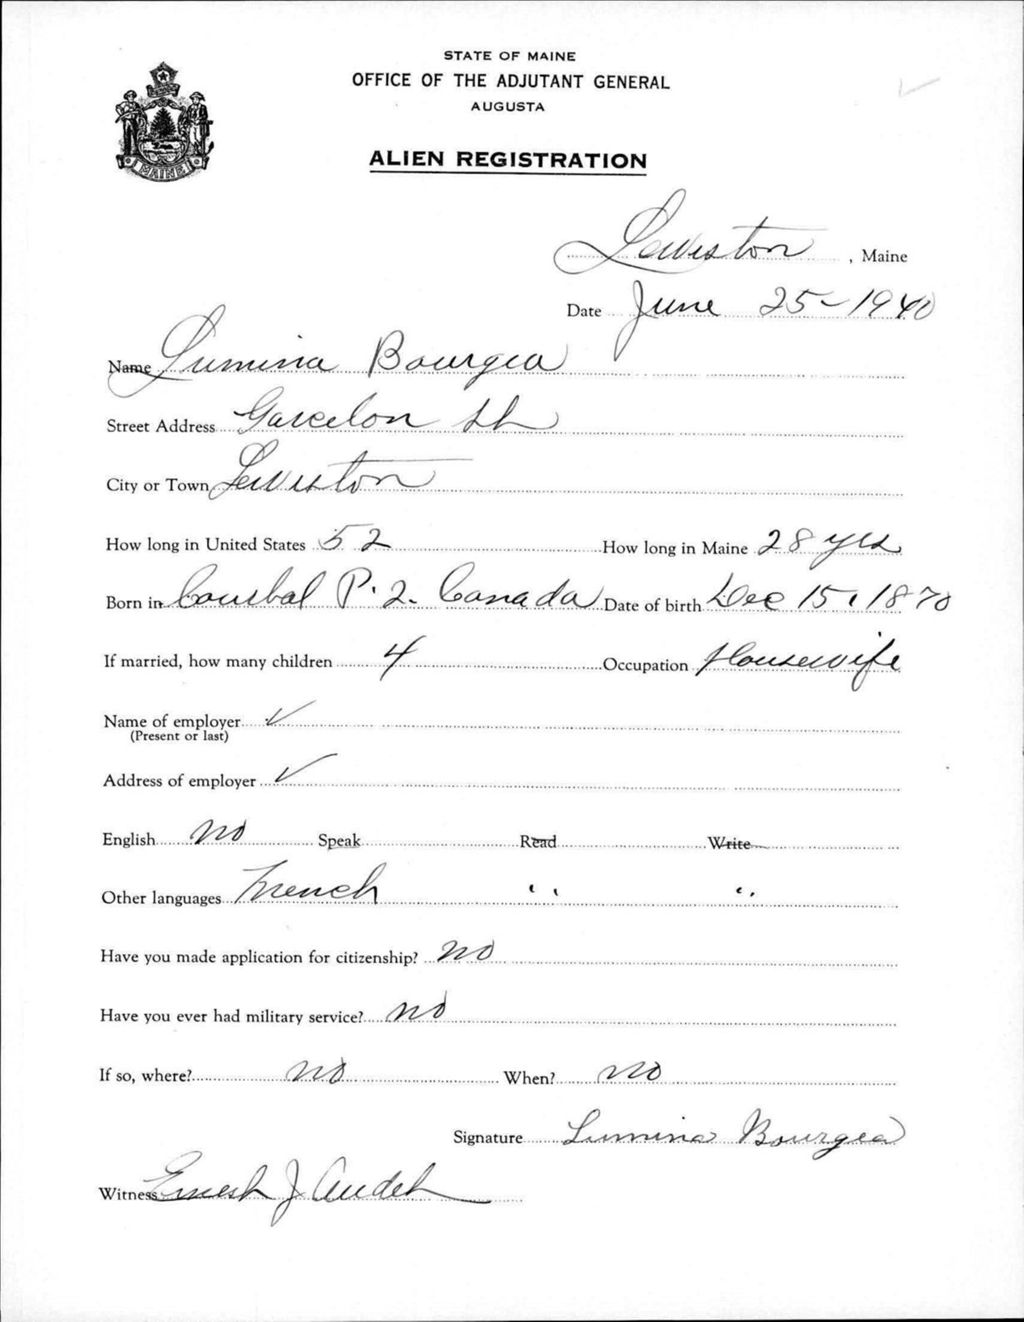 STATE OF MAINE
OFFICE OF THE ADJUTANT GENERAL
AUGUSTA
ALIEN REGISTRATION
MAINE
Lewiston, Maine
Date June 25-1940
Name Lumina Bourgea
Street Address Garcelon St
City or Town Lewiston
How long in United States 52 How long in Maine 28 yrs
Born in P.Q. Canada Date of birth Dec 15, 1870
If married, how many children 4 Occupation Housewife
Name of employer ✓
(Present or last)
Address of employer ✓
English No Speak Read Write
Other languages French " "
Have you made application for citizenship? No
Have you ever had military service? No
If so, where? No When? No
Signature Lumina Bourgea
Witness Ernest J